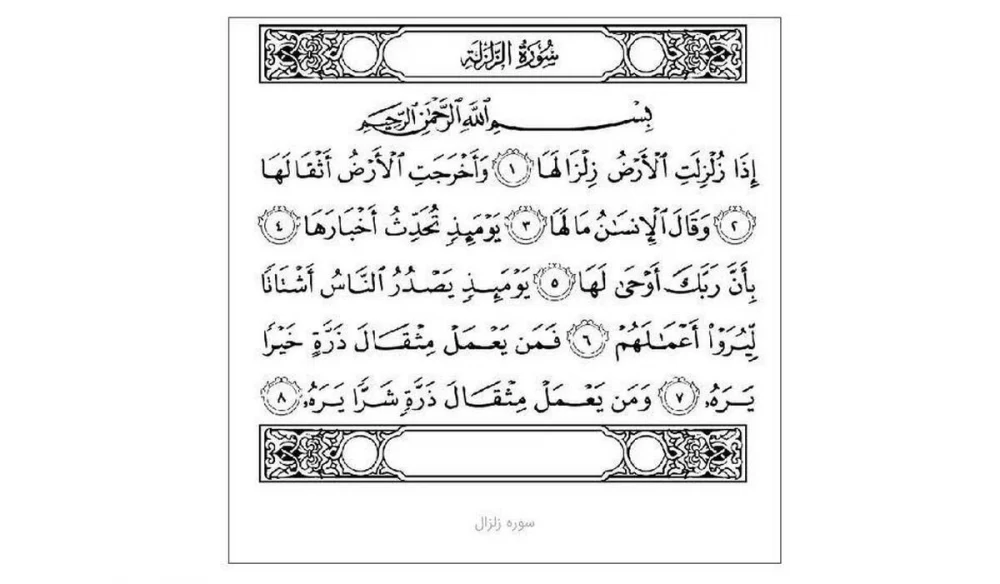 سُورَةُ الزَّلْزَلَةِ
بِسْمِ ٱللَّهِ ٱلرَّحْمَٰنِ ٱلرَّحِيمِ
إِذَا زُلْزِلَتِ ٱلْأَرْضُ زِلْزَالَهَا ١ وَأَخْرَجَتِ ٱلْأَرْضُ أَثْقَالَهَا
٢ وَقَالَ ٱلْإِنسَٰنُ مَا لَهَا ٣ يَوْمَئِذٍ تُحَدِّثُ أَخْبَارَهَا ٤
بِأَنَّ رَبَّكَ أَوْحَىٰ لَهَا ٥ يَوْمَئِذٍ يَصْدُرُ ٱلنَّاسُ أَشْتَاتًا
لِّيُرَوْا۟ أَعْمَٰلَهُمْ ٦ فَمَن يَعْمَلْ مِثْقَالَ ذَرَّةٍ خَيْرًا
يَرَهُۥ ٧ وَمَن يَعْمَلْ مِثْقَالَ ذَرَّةٍ شَرًّا يَرَهُۥ ٨
سوره زلزال